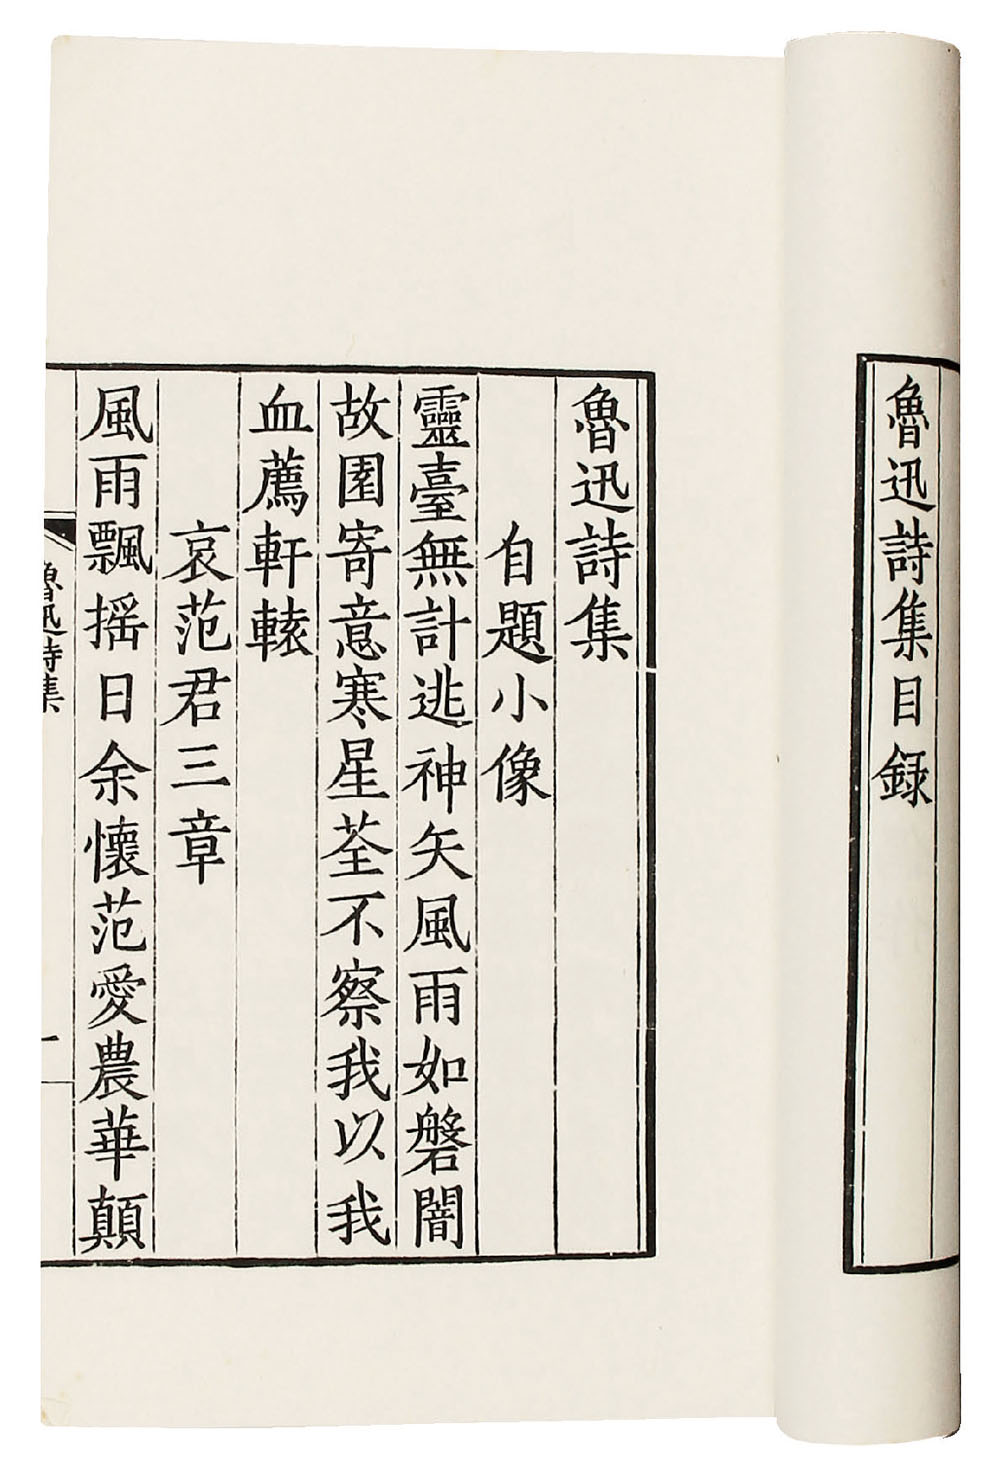 魯迅詩集目録
魯迅詩集
自題小像
靈臺無計逃神矢風雨如磐闇
故園寄意寒星荃不察我以我
血薦軒轅
哀范君三章
風雨飄摇日余懷范愛農華顛
魯迅詩集
一